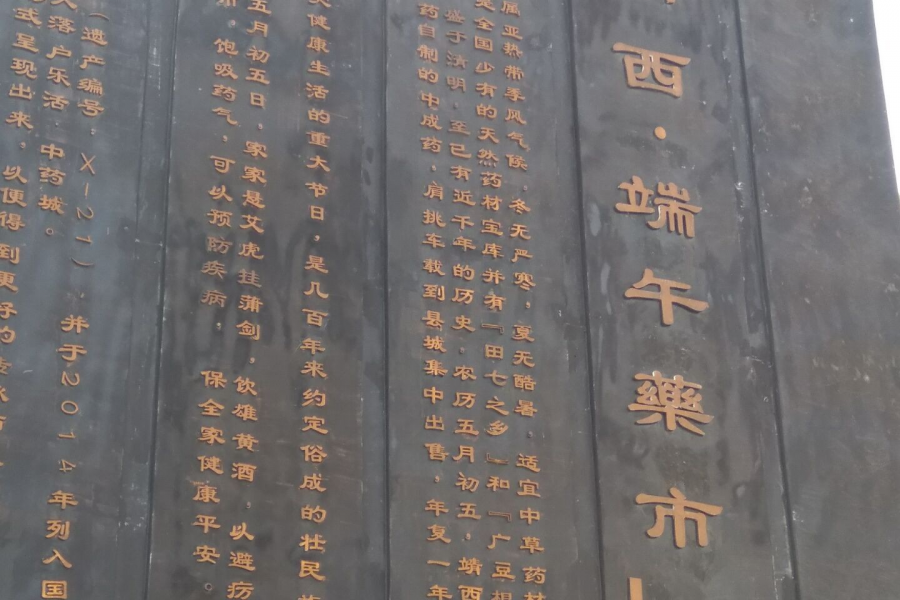 西·端午藥市
属亚热带季风气候,冬无严寒,夏无酷暑,适宜中草药材
全国少有的天然药材宝库并有『田七之乡』和『广豆根
盛于清明,至已有近千年的历史,农历五月初五,靖西
药自制的中成药,肩挑车载到县城集中出售,年复一年
健康生活的重大节日,是几百年来约定俗成的壮民
五月初五日,家家悬艾虎挂蒲剑,饮雄黄酒,以避疠
饱吸药气,可以预防疾病,保全家健康平安。
(遗产编号:X-21),并于2014年列入国
落户乐活·中药城。
式呈现出来,以便得到更好的